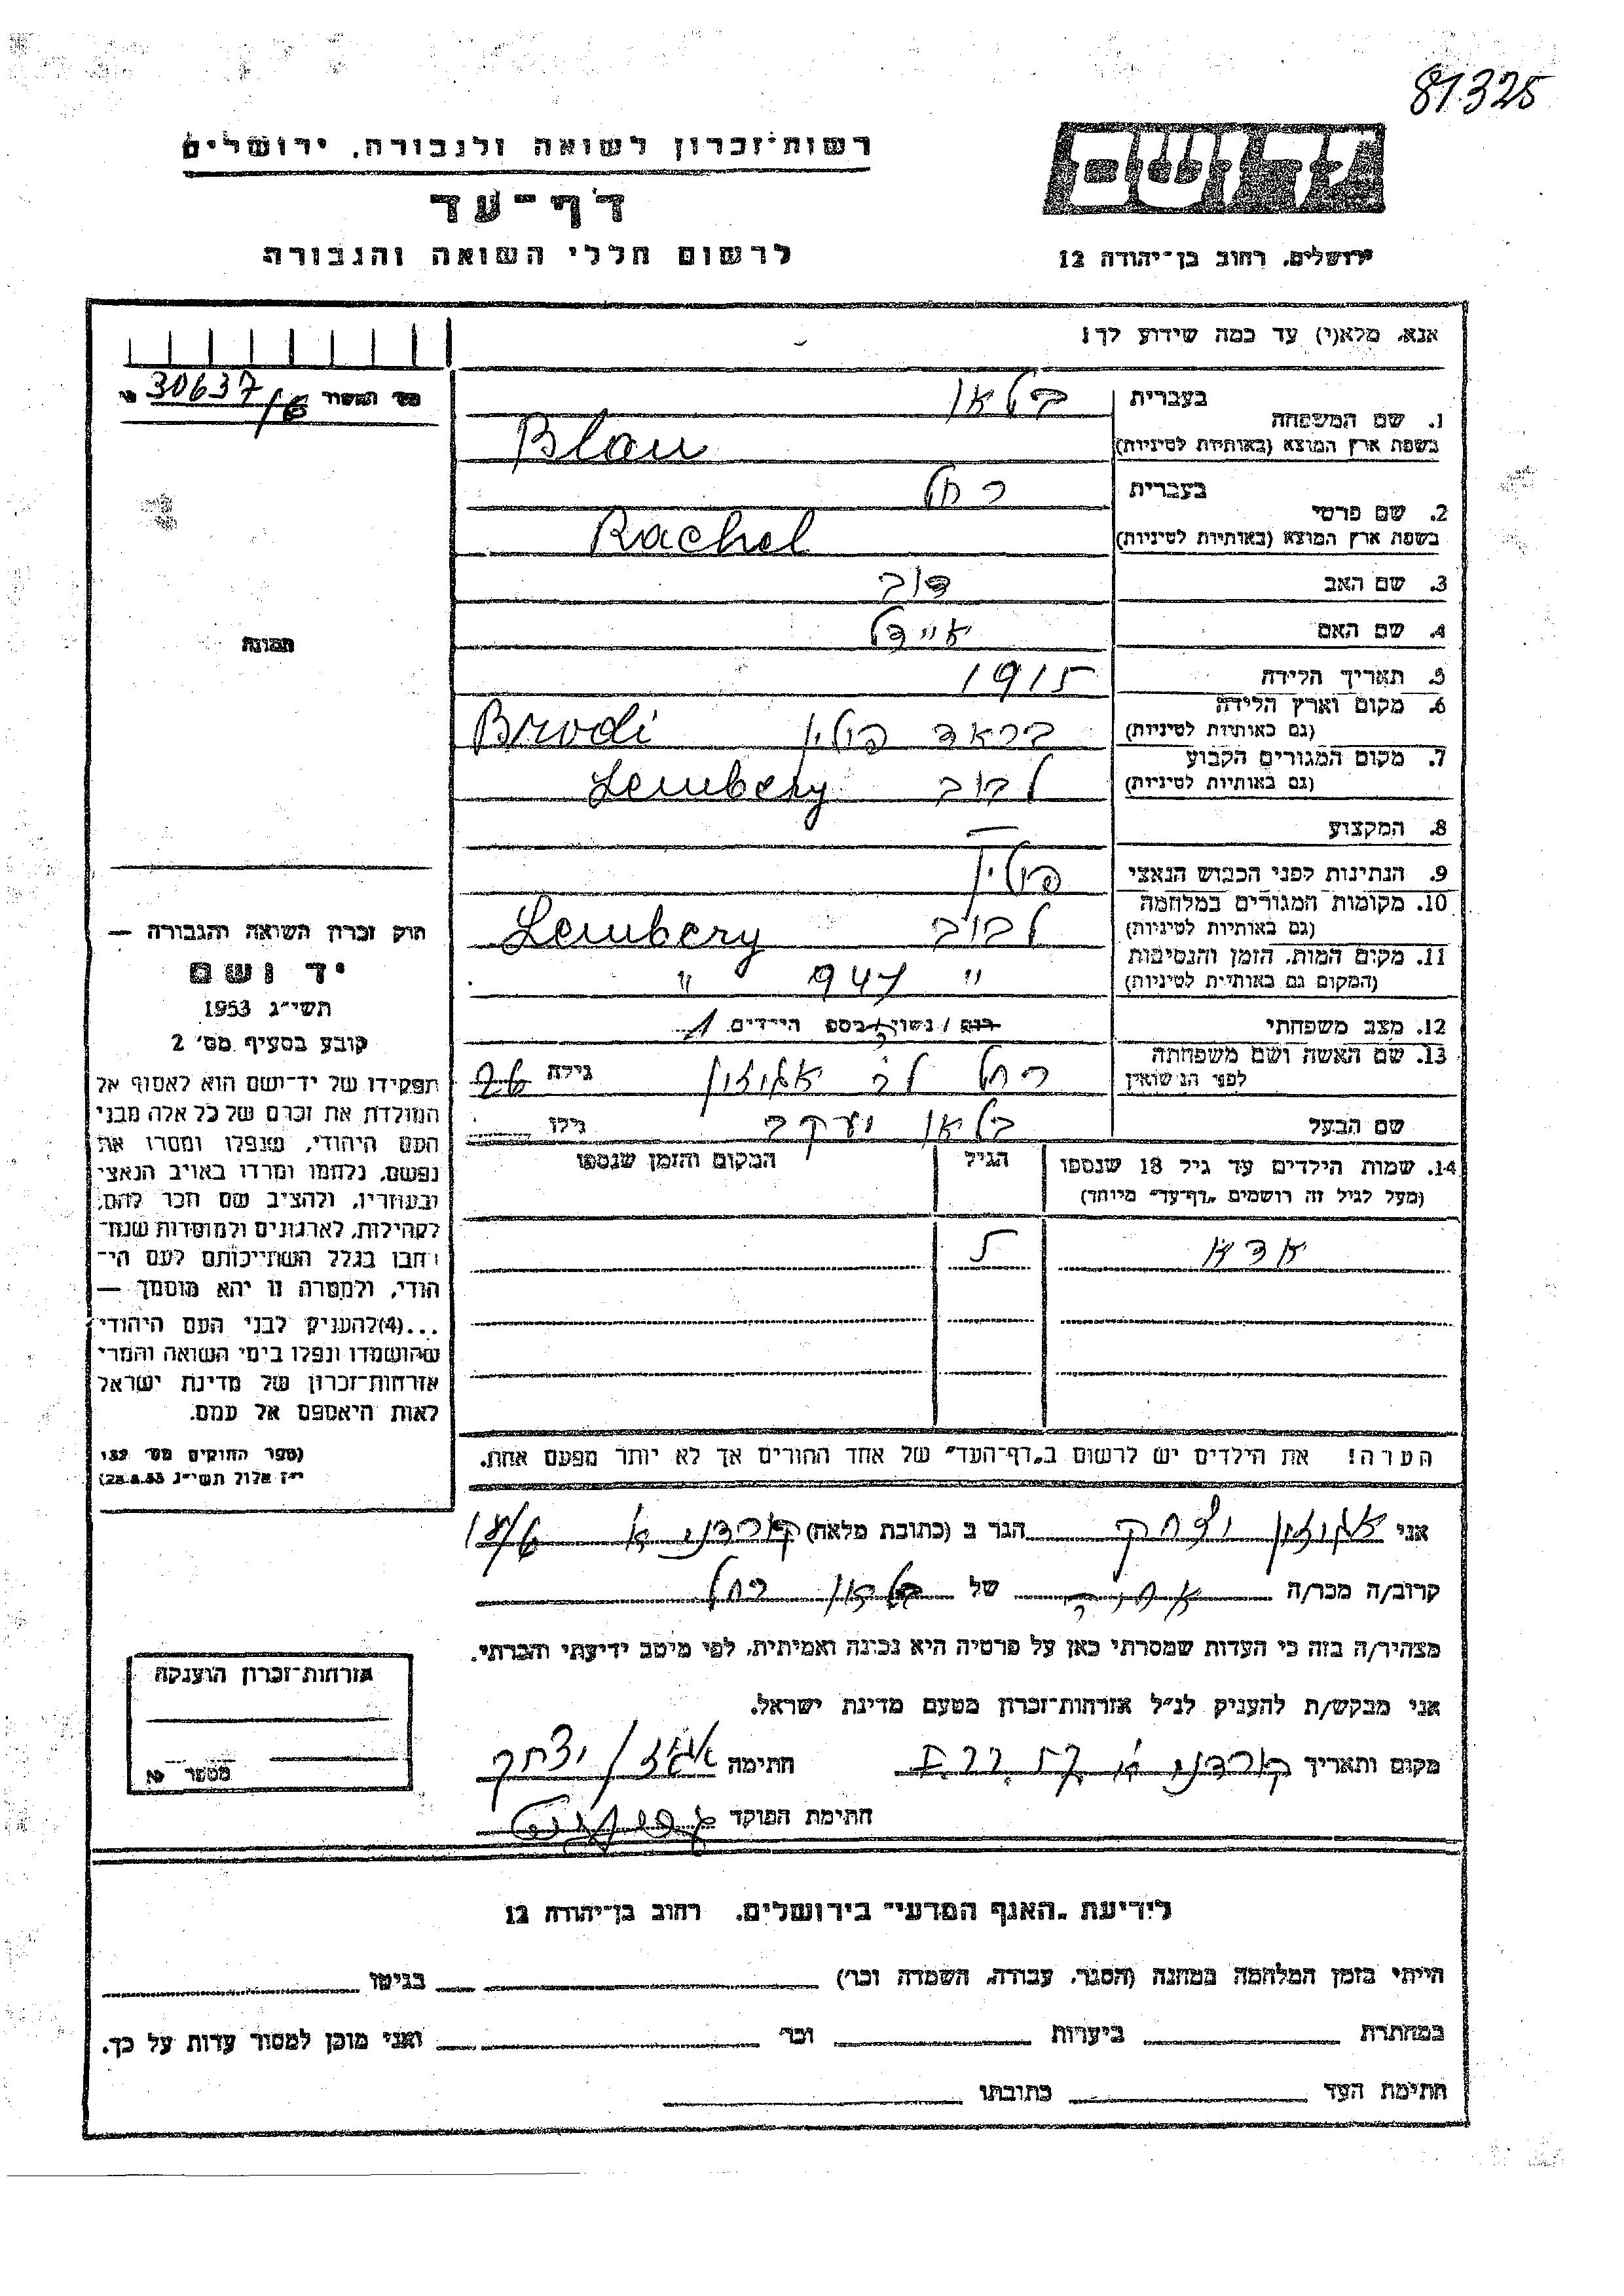 81325
רשות־זכרון לשואה ולגבורה, ירושלים
דף־עד
לרשום חללי השואה והגבורה
ירושלים, רחוב בן־יהודה 12
אנא, מלא(י) עד כמה שידוע לך!
מס׳ 30637/6
1. שם המשפחה
בעברית בלאו
בשפת ארץ המוצא (באותיות לטיניות) Blau
2. שם פרטי
בעברית רחל
בשפת ארץ המוצא (באותיות לטיניות) Rachel
3. שם האב דוב
4. שם האם אייד
5. תאריך הלידה 1915
6. מקום וארץ הלידה
(גם באותיות לטיניות) בראד פולין Brodi
7. מקום המגורים הקבוע
(גם באותיות לטיניות) לבוב Lemberg
8. המקצוע —
9. הנתינות לפני הכבוש הנאצי פולין
10. מקומות המגורים במלחמה
(גם באותיות לטיניות) לבוב Lemberg
11. מקום המות, הזמן והנסיבות
(המקום גם באותיות לטיניות) " "
12. מצב משפחתי רווק / נשוי / מספר הילדים 1
13. שם האשה ושם משפחתה
לפני הנישואין רחל גילה 26
שם הבעל בלאו יעקב גילו
14. שמות הילדים עד גיל 18 שנספו
(מעל לגיל זה רושמים „דף־עד״ מיוחד)
הגיל
המקום והזמן שנספו
5
תמונה
חוק זכרון השואה והגבורה —
יד ושם
תשי״ג 1953
קובע בסעיף מס׳ 2
תפקידו של יד־ושם הוא לאסוף אל
המולדת את זכרם של כל אלה מבני
העם היהודי, שנפלו ומסרו את
נפשם, נלחמו ומרדו באויב הנאצי
ובעוזריו, ולהציב שם וזכר להם,
לקהילות, לארגונים ולמוסדות שנח־
רבו בגלל השתייכותם לעם הי־
הודי, ולמטרה זו יהא מוסמך —
...(4) להעניק לבני העם היהודי
שהושמדו ונפלו בימי השואה והמרי
אזרחות־זכרון של מדינת ישראל
לאות היאספם אל עמם.
(ספר החוקים מס׳ 132
י״ז אלול תשי״ג 28.8.53)
הערה! את הילדים יש לרשום ב„דף־העד״ של אחד ההורים אך לא יותר מפעם אחת.
אני יצחק הגר ב (כתובת מלאה)
קרוב/ה מכר/ה של בלאו רחל
מצהיר/ה בזה כי העדות שמסרתי כאן על פרטיה היא נכונה ואמיתית, לפי מיטב ידיעתי והכרתי.
אני מבקש/ת להעניק לנ״ל אזרחות־זכרון מטעם מדינת ישראל.
מקום ותאריך חתימה יצחק
חתימת הפוקד
אזרחות־זכרון הוענקה
מספר
לידיעת „האגף המדעי״ בירושלים, רחוב בן־יהודה 12
הייתי בזמן המלחמה במחנה (הסגר, עבודה, השמדה וכו׳) בגיטו
במחתרת ביערות וכו׳ ואני מוכן למסור עדות על כך.
חתימת העד כתובתו